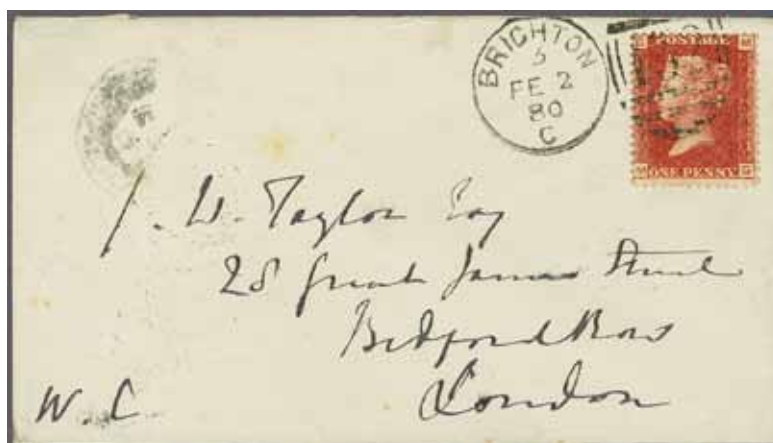 BRIGHTON
FE 2
80
C
POSTAGE
ONE PENNY
J. W. Taylor Esq
28 Great James Street
Bedford Row
London
W.C.